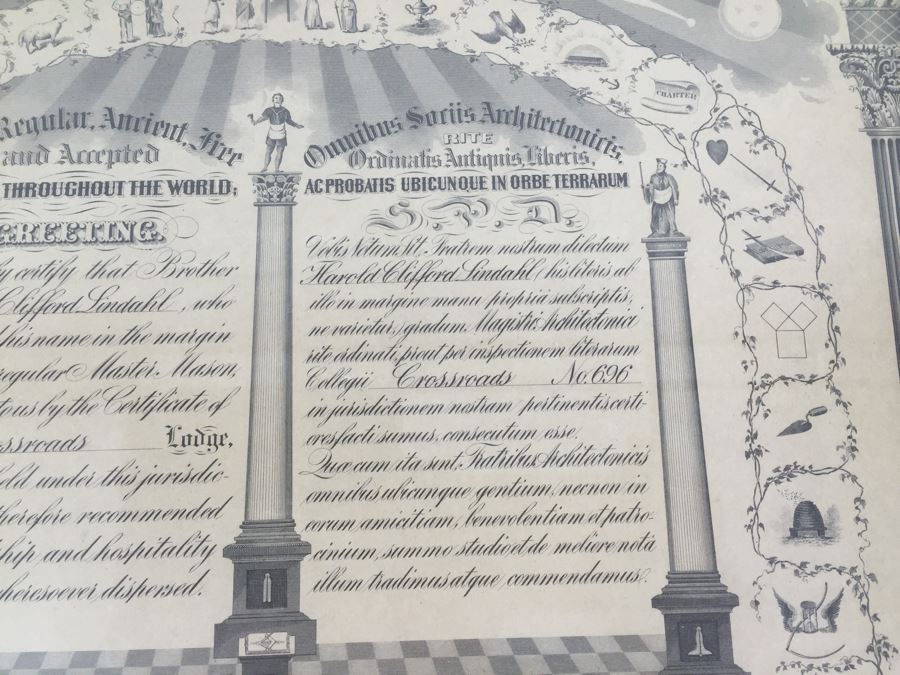 Regular, Ancient, Free
and Accepted
THROUGHOUT THE WORLD;
GREETING.
certify that Brother
Clifford Lindahl, who
his name in the margin
regular Master Mason,
by the Certificate of
Lodge,
under this jurisdic-
therefore recommended
and hospitality
dispersed.
CHARTER
Omnibus Sociis Architectonicis,
RITE
Ordinatis Antiquis, Liberis,
AC PROBATIS UBICUNQUE IN ORBE TERRARUM
S. P. D.
Vobis Notum Sit, Fratrem nostrum dilectum
Harold Clifford Lindahl, his literis ab
illo in margine manu propriâ subscriptis,
ne varietur, gradum Magistri Architectonici
rite ordinati, prout per inspectionem literarum
Collegii Crossroads No. 696
in jurisdictionem nostram pertinentis certi-
ores facti sumus, consecutum esse.
Quæ cum ita sint, Fratribus Architectonicis
omnibus ubicunque gentium, necnon in
eorum amicitiam, benevolentiam et patro-
cinium, summo studio et de meliore notâ
illum tradimus atque commendamus.